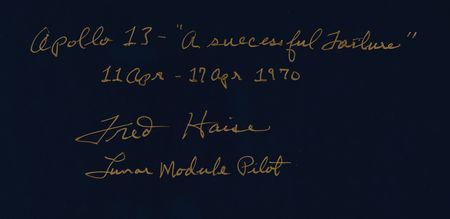 Apollo 13 - "A successful Failure"
11 Apr - 17 Apr 1970
Fred Haise
Lunar Module Pilot